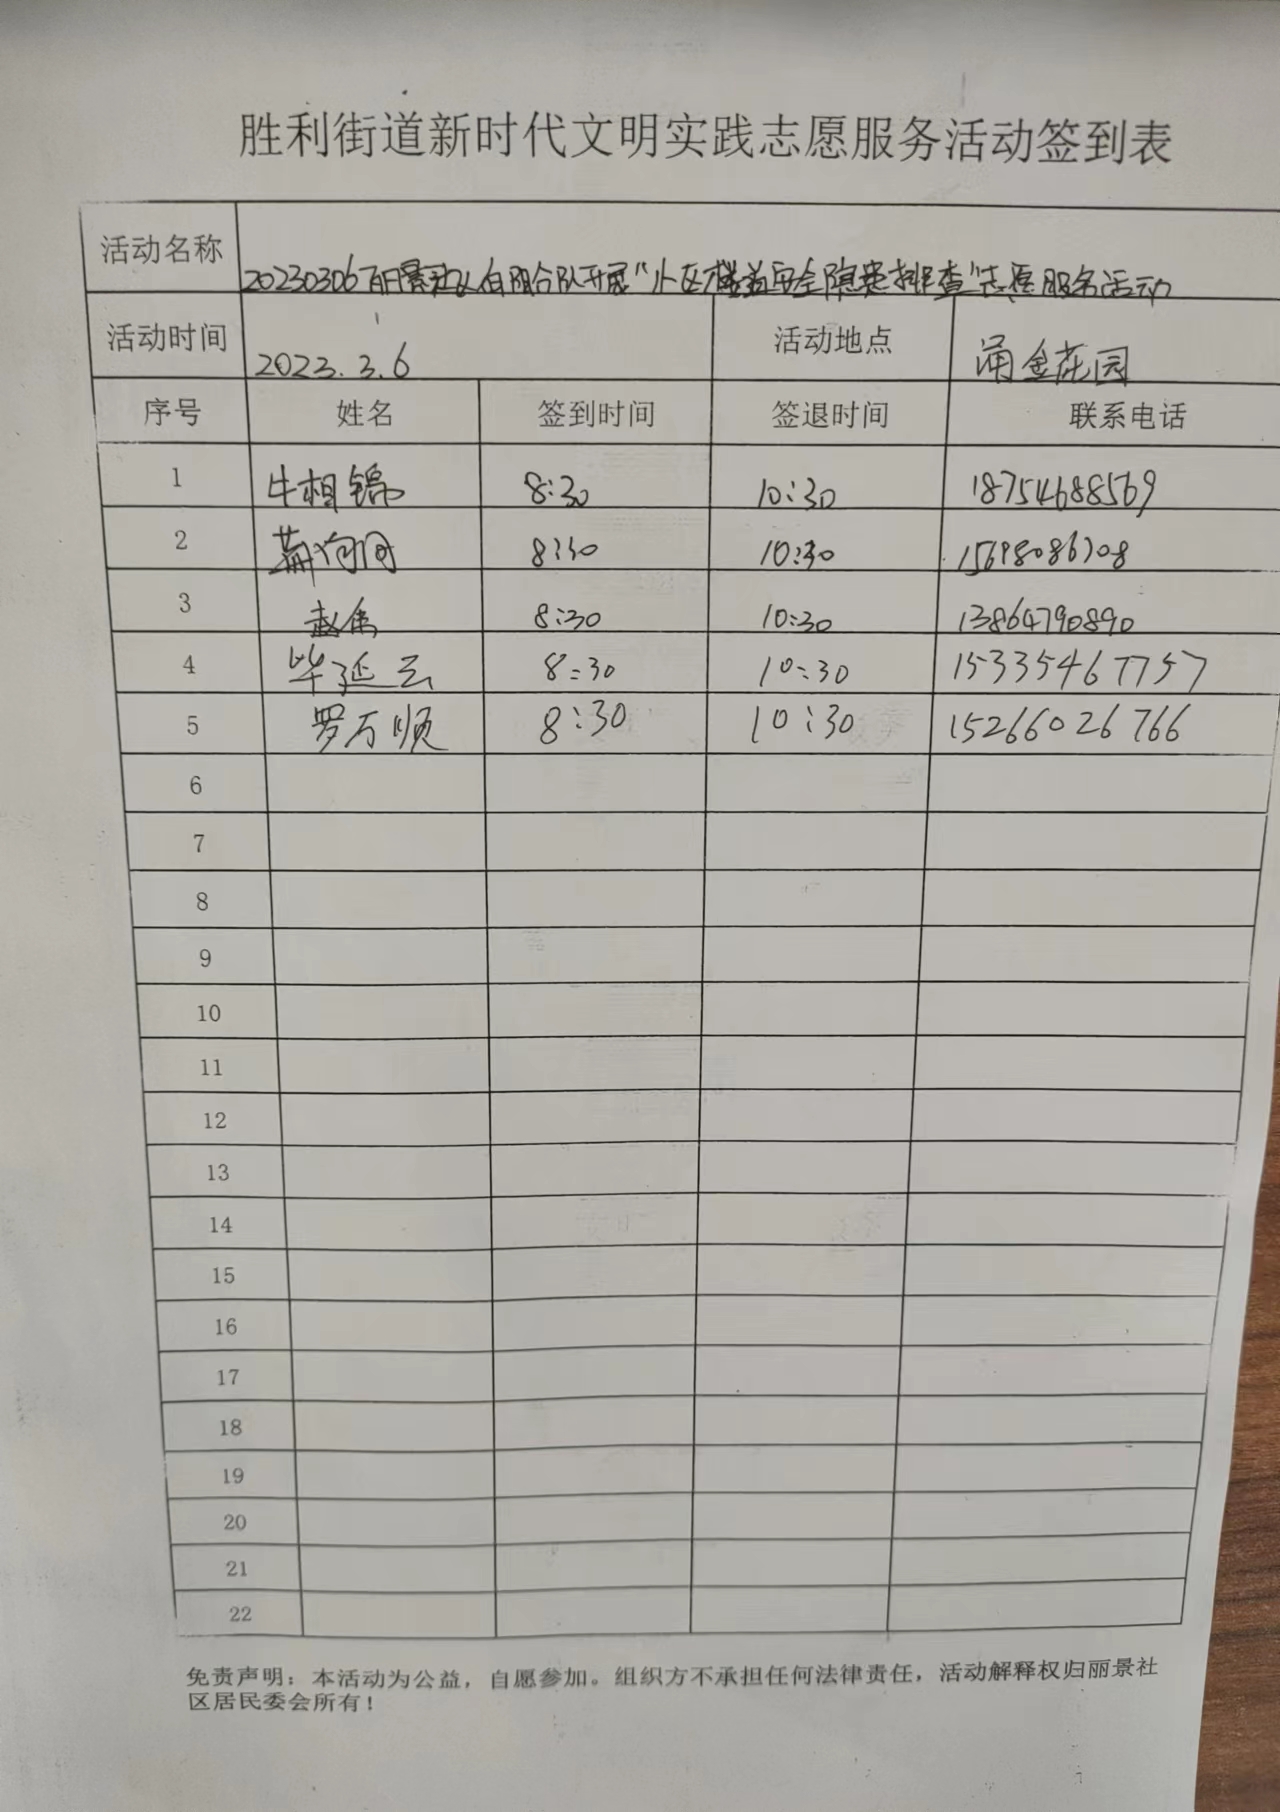 胜利街道新时代文明实践志愿服务活动签到表
活动名称 20230306 开展“小区楼道安全隐患排查”志愿服务活动
活动时间 2023.3.6 活动地点 涌金花园
序号 姓名 签到时间 签退时间 联系电话
1 牛相锦 8:30 10:30 18754688569
2 8:30 10:30 15698086708
3 赵伟 8:30 10:30 13864790890
4 毕延云 8:30 10:30 15335467757
5 罗万顺 8:30 10:30 15266026766
6
7
8
9
10
11
12
13
14
15
16
17
18
19
20
21
22
免责声明：本活动为公益，自愿参加。组织方不承担任何法律责任，活动解释权归丽景社
区居民委会所有！